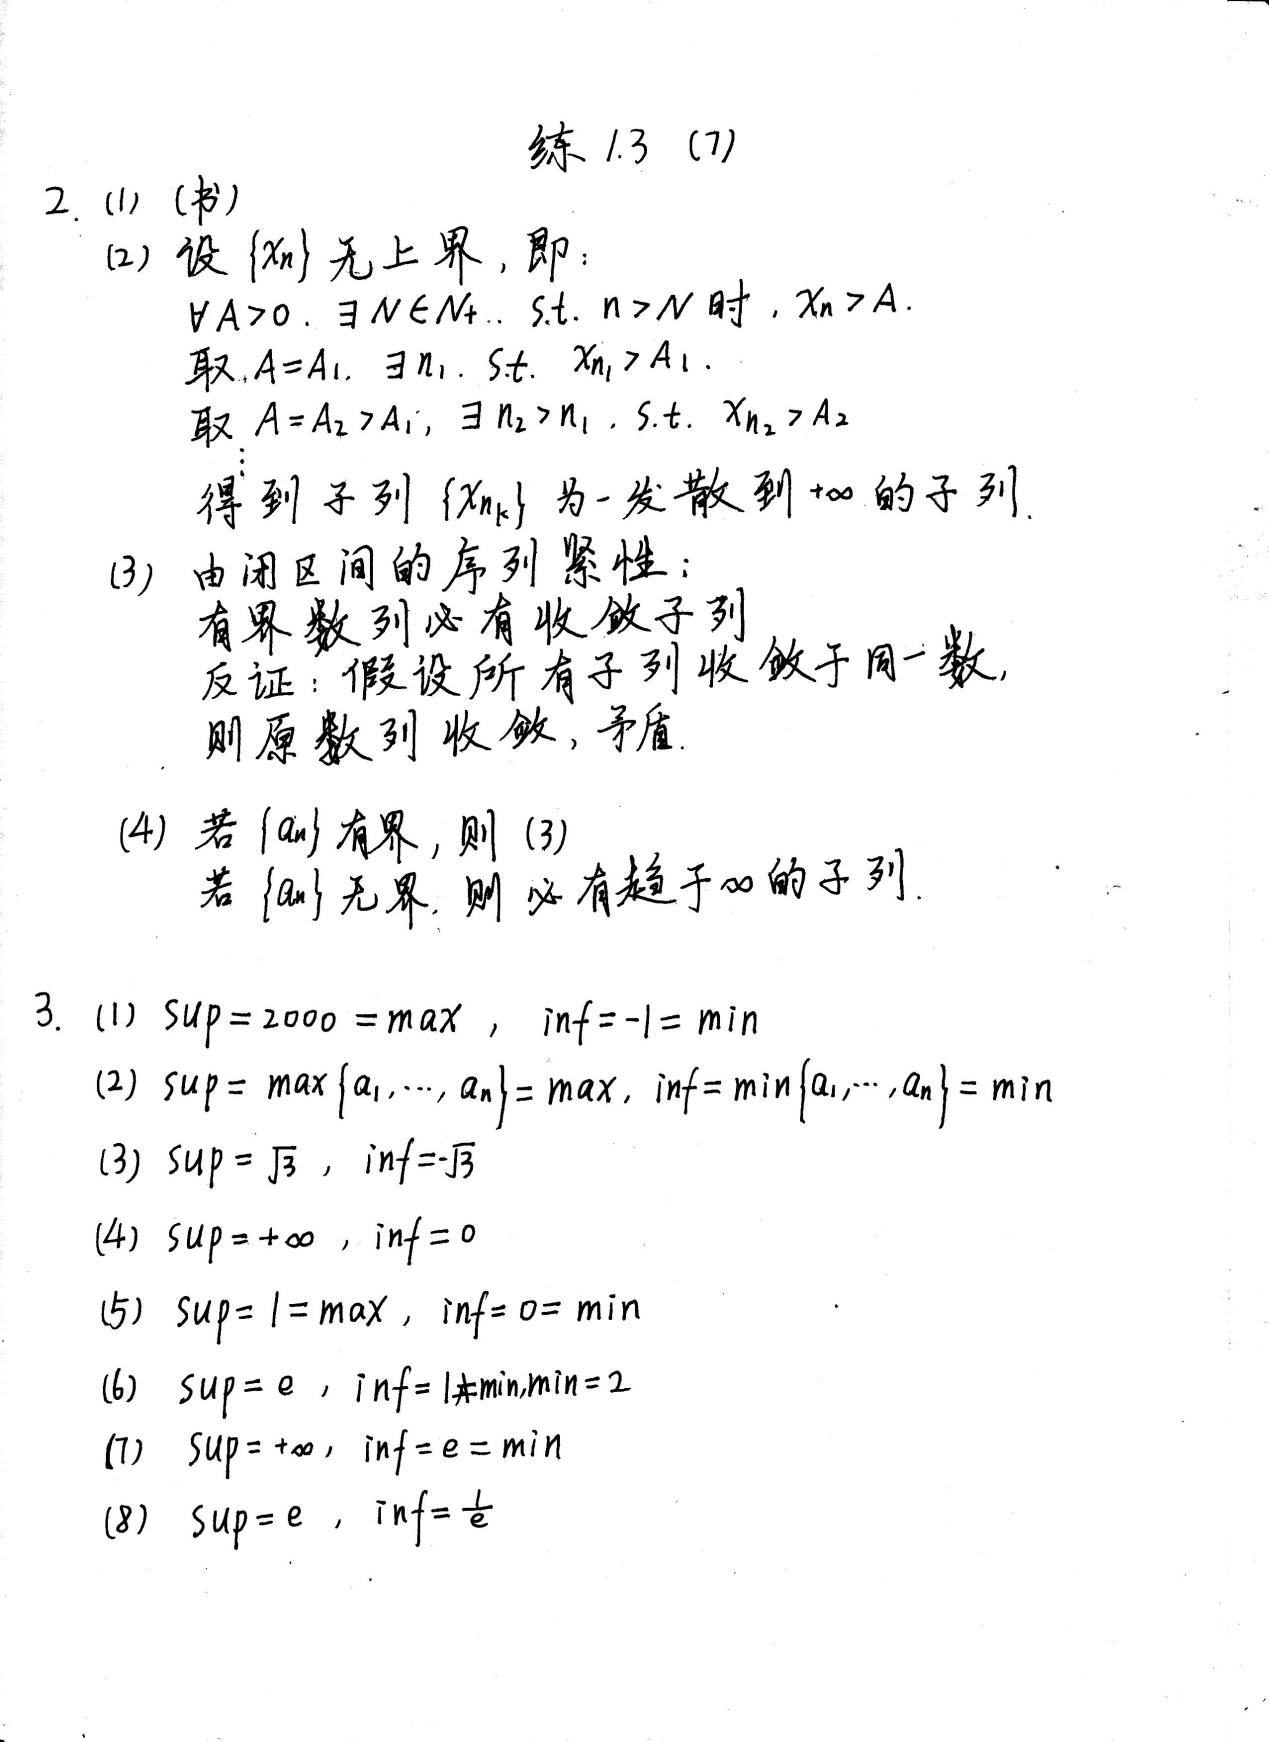 练 1.3 (7)
2. (1) (书)
(2) 设 {xn} 无上界, 即:
∀A>0. ∃N∈N+.. s.t. n>N 时, xn>A.
取 A=A1. ∃n1. s.t. xn1>A1.
取 A=A2>A1, ∃n2>n1. s.t. xn2>A2
⋮
得到子列 {xnk} 为一发散到+∞的子列.
(3) 由闭区间的序列紧性:
有界数列必有收敛子列
反证: 假设所有子列收敛于同一数,
则原数列收敛, 矛盾.
(4) 若 {an} 有界, 则 (3)
若 {an} 无界. 则必有趋于∞的子列.
3. (1) sup=2000=max, inf=-1=min
(2) sup=max{a1,…,an}=max, inf=min{a1,…,an}=min
(3) sup=√3, inf=-√3
(4) sup=+∞, inf=0
(5) sup=1=max, inf=0=min
(6) sup=e, inf=1≠min,min=2
(7) sup=+∞, inf=e=min
(8) sup=e, inf=1/e